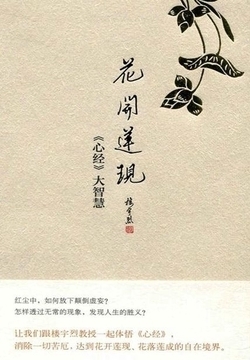 花開蓮現
《心经》大智慧
楼宇烈
红尘中，如何放下颠倒虚妄？
怎样透过无常的现象，发现人生的胜义？
让我们跟楼宇烈教授一起体悟《心经》，
消除一切苦厄，达到花开莲现、花落莲成的自在境界。